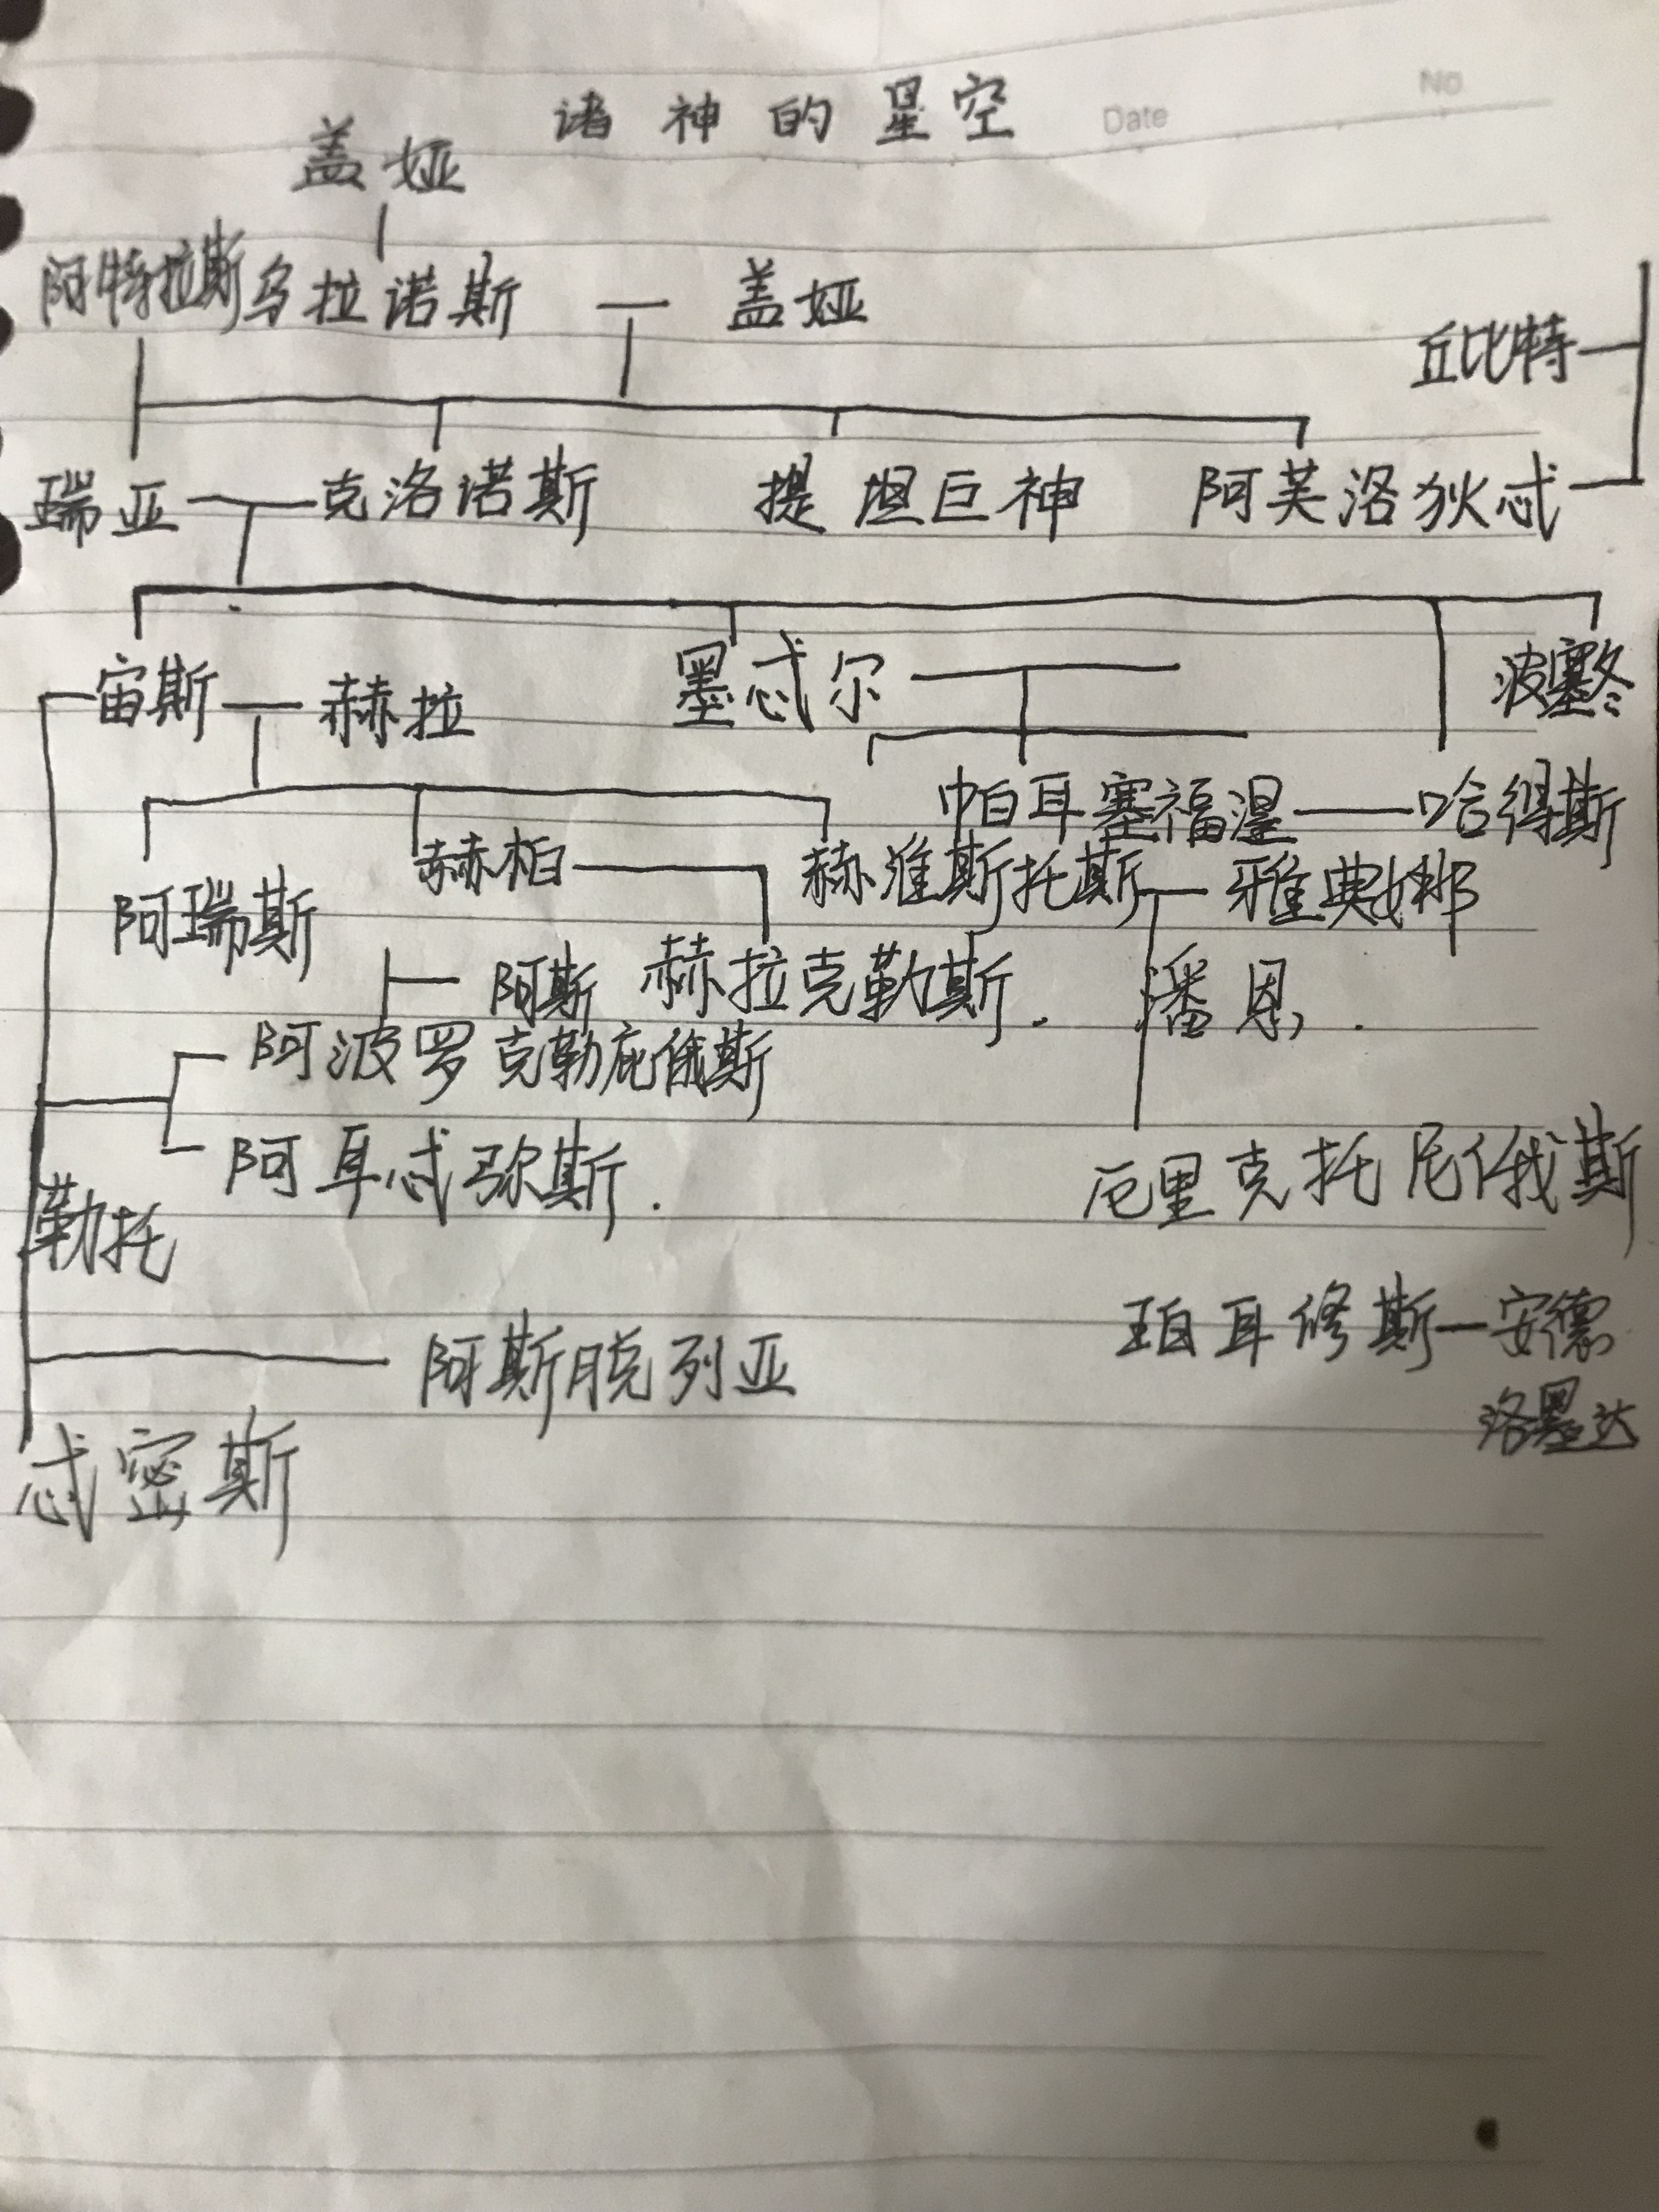 No
诸神的星空
Date
盖娅
阿特拉斯 乌拉诺斯 盖娅
丘比特
瑞亚 克洛诺斯 提坦巨神 阿芙洛狄忒
宙斯 赫拉 墨忒尔 波塞冬
帕耳塞福涅 哈得斯
赫柏 赫淮斯托斯 雅典娜
阿瑞斯
阿斯 赫拉克勒斯. 潘恩.
阿波罗 克勒庇俄斯
阿耳忒弥斯.
厄里克托尼俄斯
勒托
珀耳修斯 安德
阿斯脱列亚
洛墨达
忒密斯